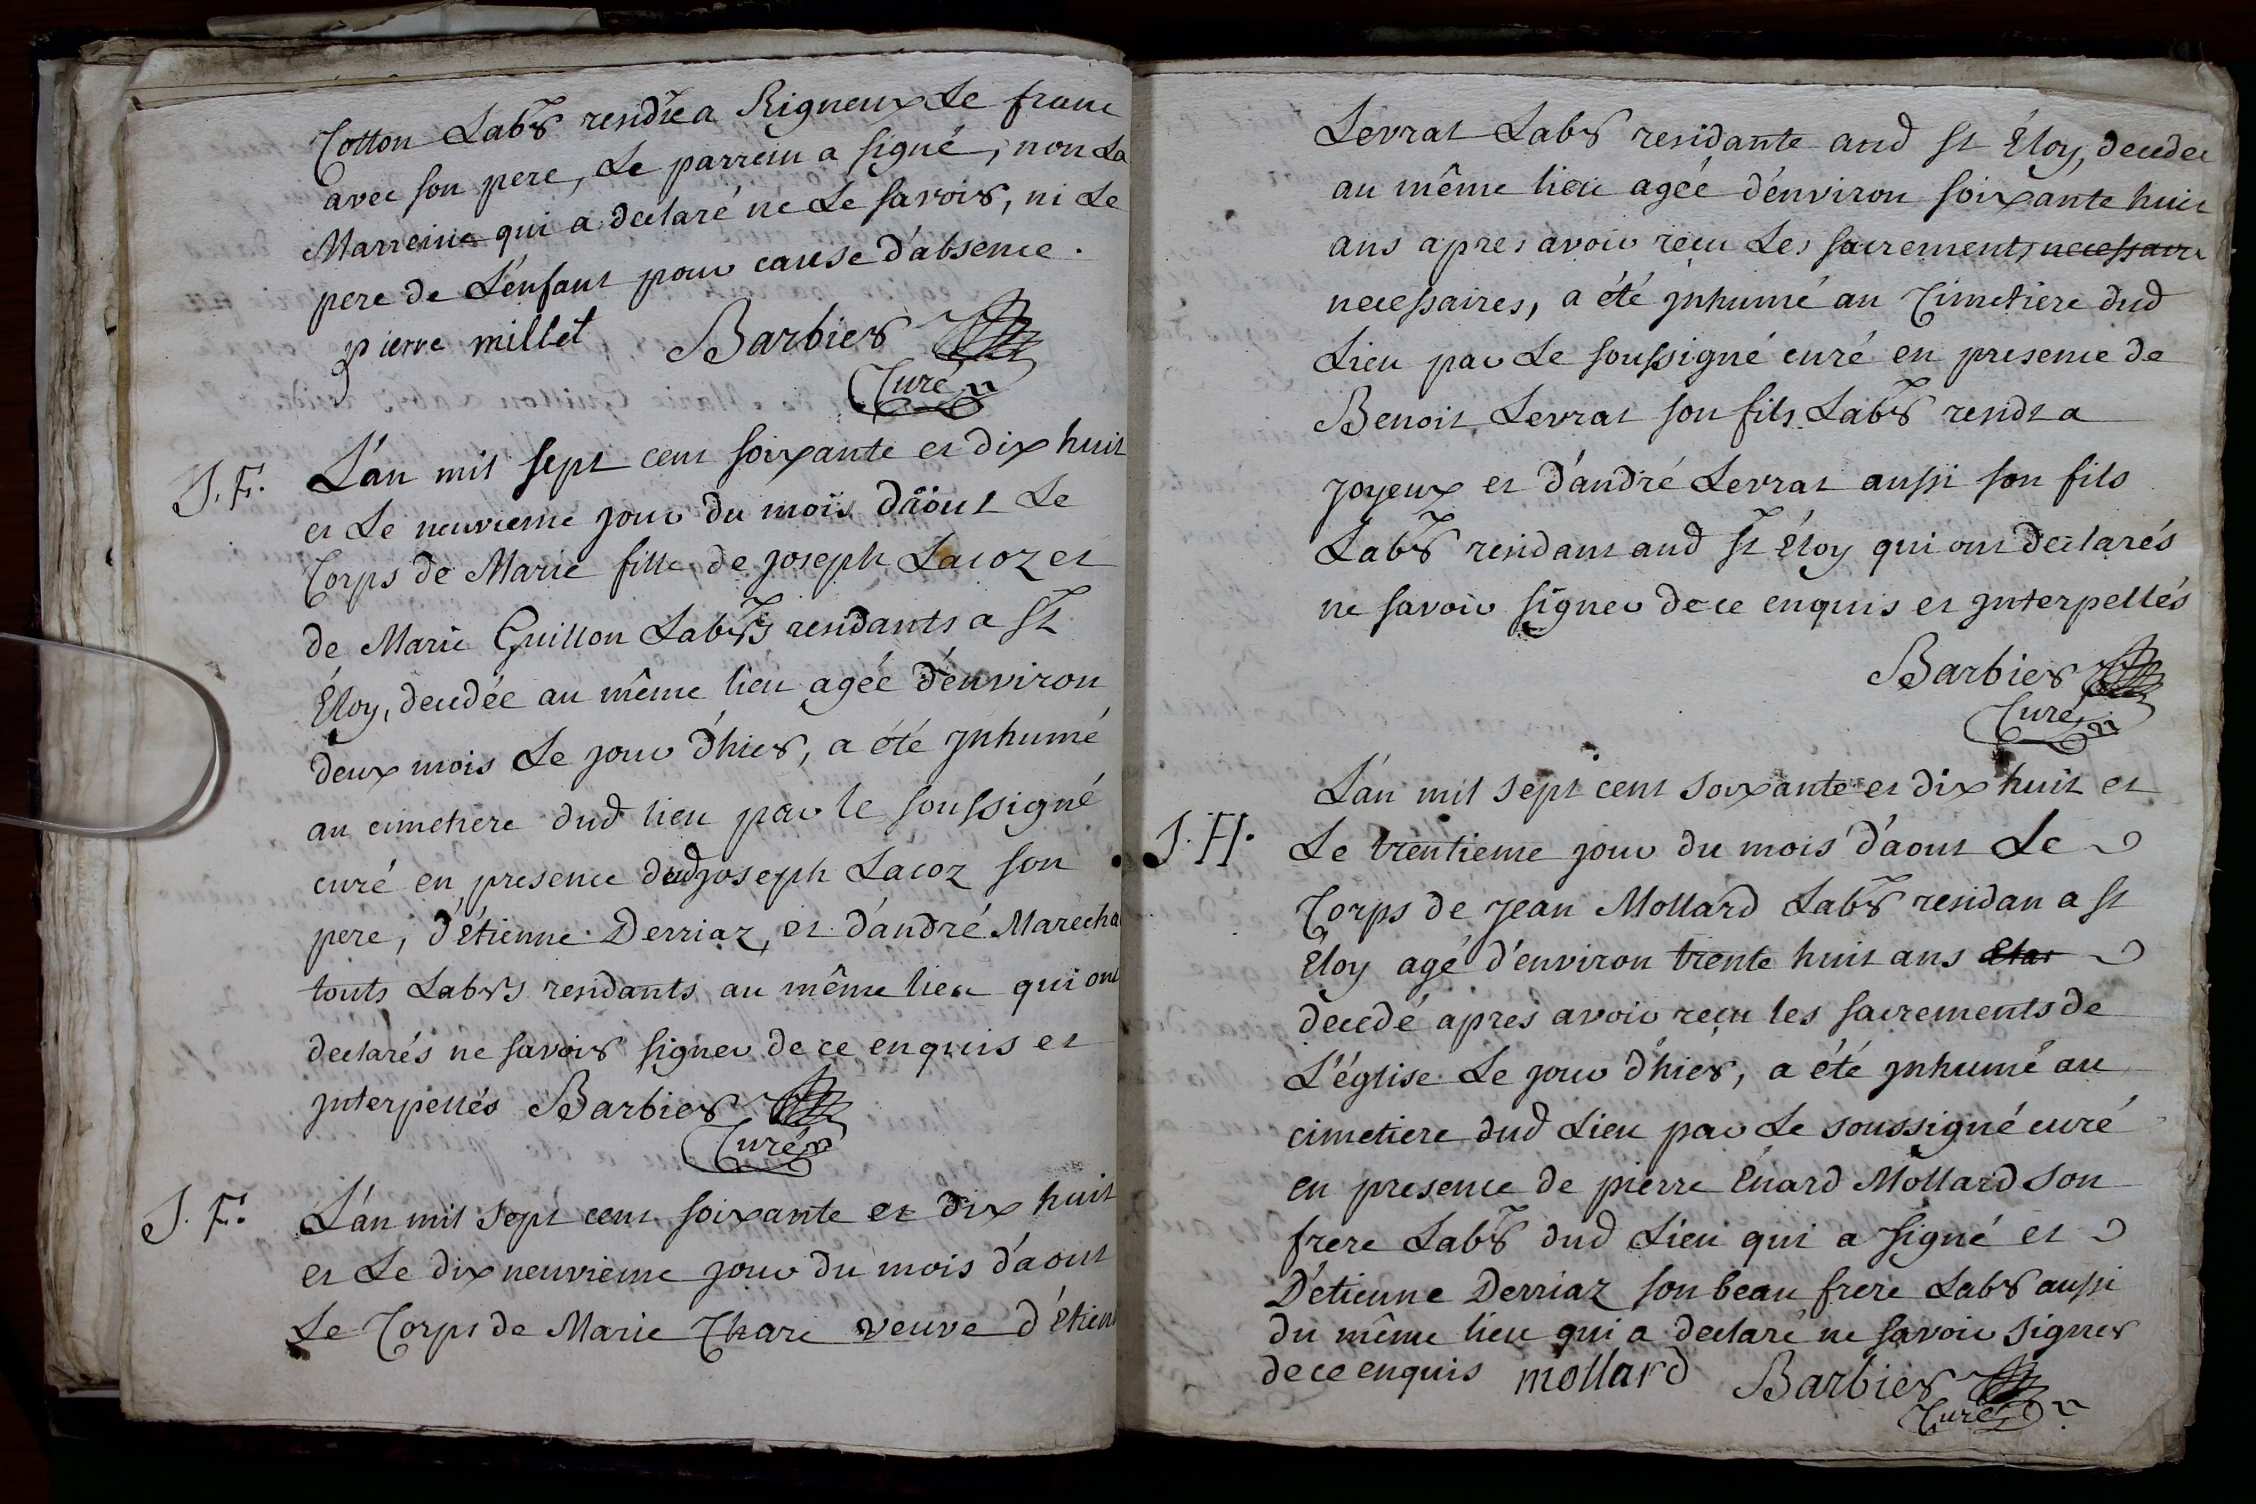 Cotton Labr residte a Rigneux Le franc
avec son pere, Le parrein a signé, non La
Marreine qui a declaré ne Le savoir, ni Le
pere de L'enfant pour cause d'absence.
pierre millet Barbier
Curé
J. F. L'an mil sept cent soixante et dix huit
et Le neuvieme jour du mois d'aout Le
Corps de Marie fille de joseph Lacoz et
de Marie Guillon Labrs residants a St
Éloy, decedée au même lieu agée d'environ
deux mois Le jour d'hier, a été jnhumé
au cimetiere dud lieu par le soussigné
curé en presence dud joseph Lacoz son
pere, d'étienne Derriaz, et d'andré Marecha
touts Labrs residants au même lieu qui ont
declarés ne savoir signer de ce enquis et
jnterpellés Barbier
Curé
J. F. L'an mil sept cent soixante et dix huit
et Le dix neuvieme jour du mois d'aout
Le Corps de Marie Thare veuve d'Etien
Levrat Labr residante aud St Éloy, decedee
au même lieu agée d'environ soixante huit
ans apres avoir reçu Les sacrements necessaire
necessaires, a été jnhumé au Cimetiere dud
Lieu par Le soussigné curé en presence de
Benoit Levrat son fils Labr residt a
joyeux et d'andré Levrat aussi son fils
Labr residant aud St éloy qui ont declarés
ne savoir signer de ce enquis et jnterpellés
Barbier
Curé
L'an mil sept cent soixante et dix huit et
J. H. Le trentieme jour du mois d'aout Le
Corps de jean Mollard Labr residan a St
Éloy agé d'environ trente huit ans
decedé apres avoir reçu les sacrements de
L'église Le jour d'hier, a été jnhumé au
cimetiere dud Lieu par Le soussigné curé
en presence de pierre Enard Mollard son
frere Labr dud Lieu qui a signé et
D'etienne Derriaz son beau frere Labr aussi
du même lieu qui a declaré ne savoir signer
de ce enquis mollard Barbier
Curé